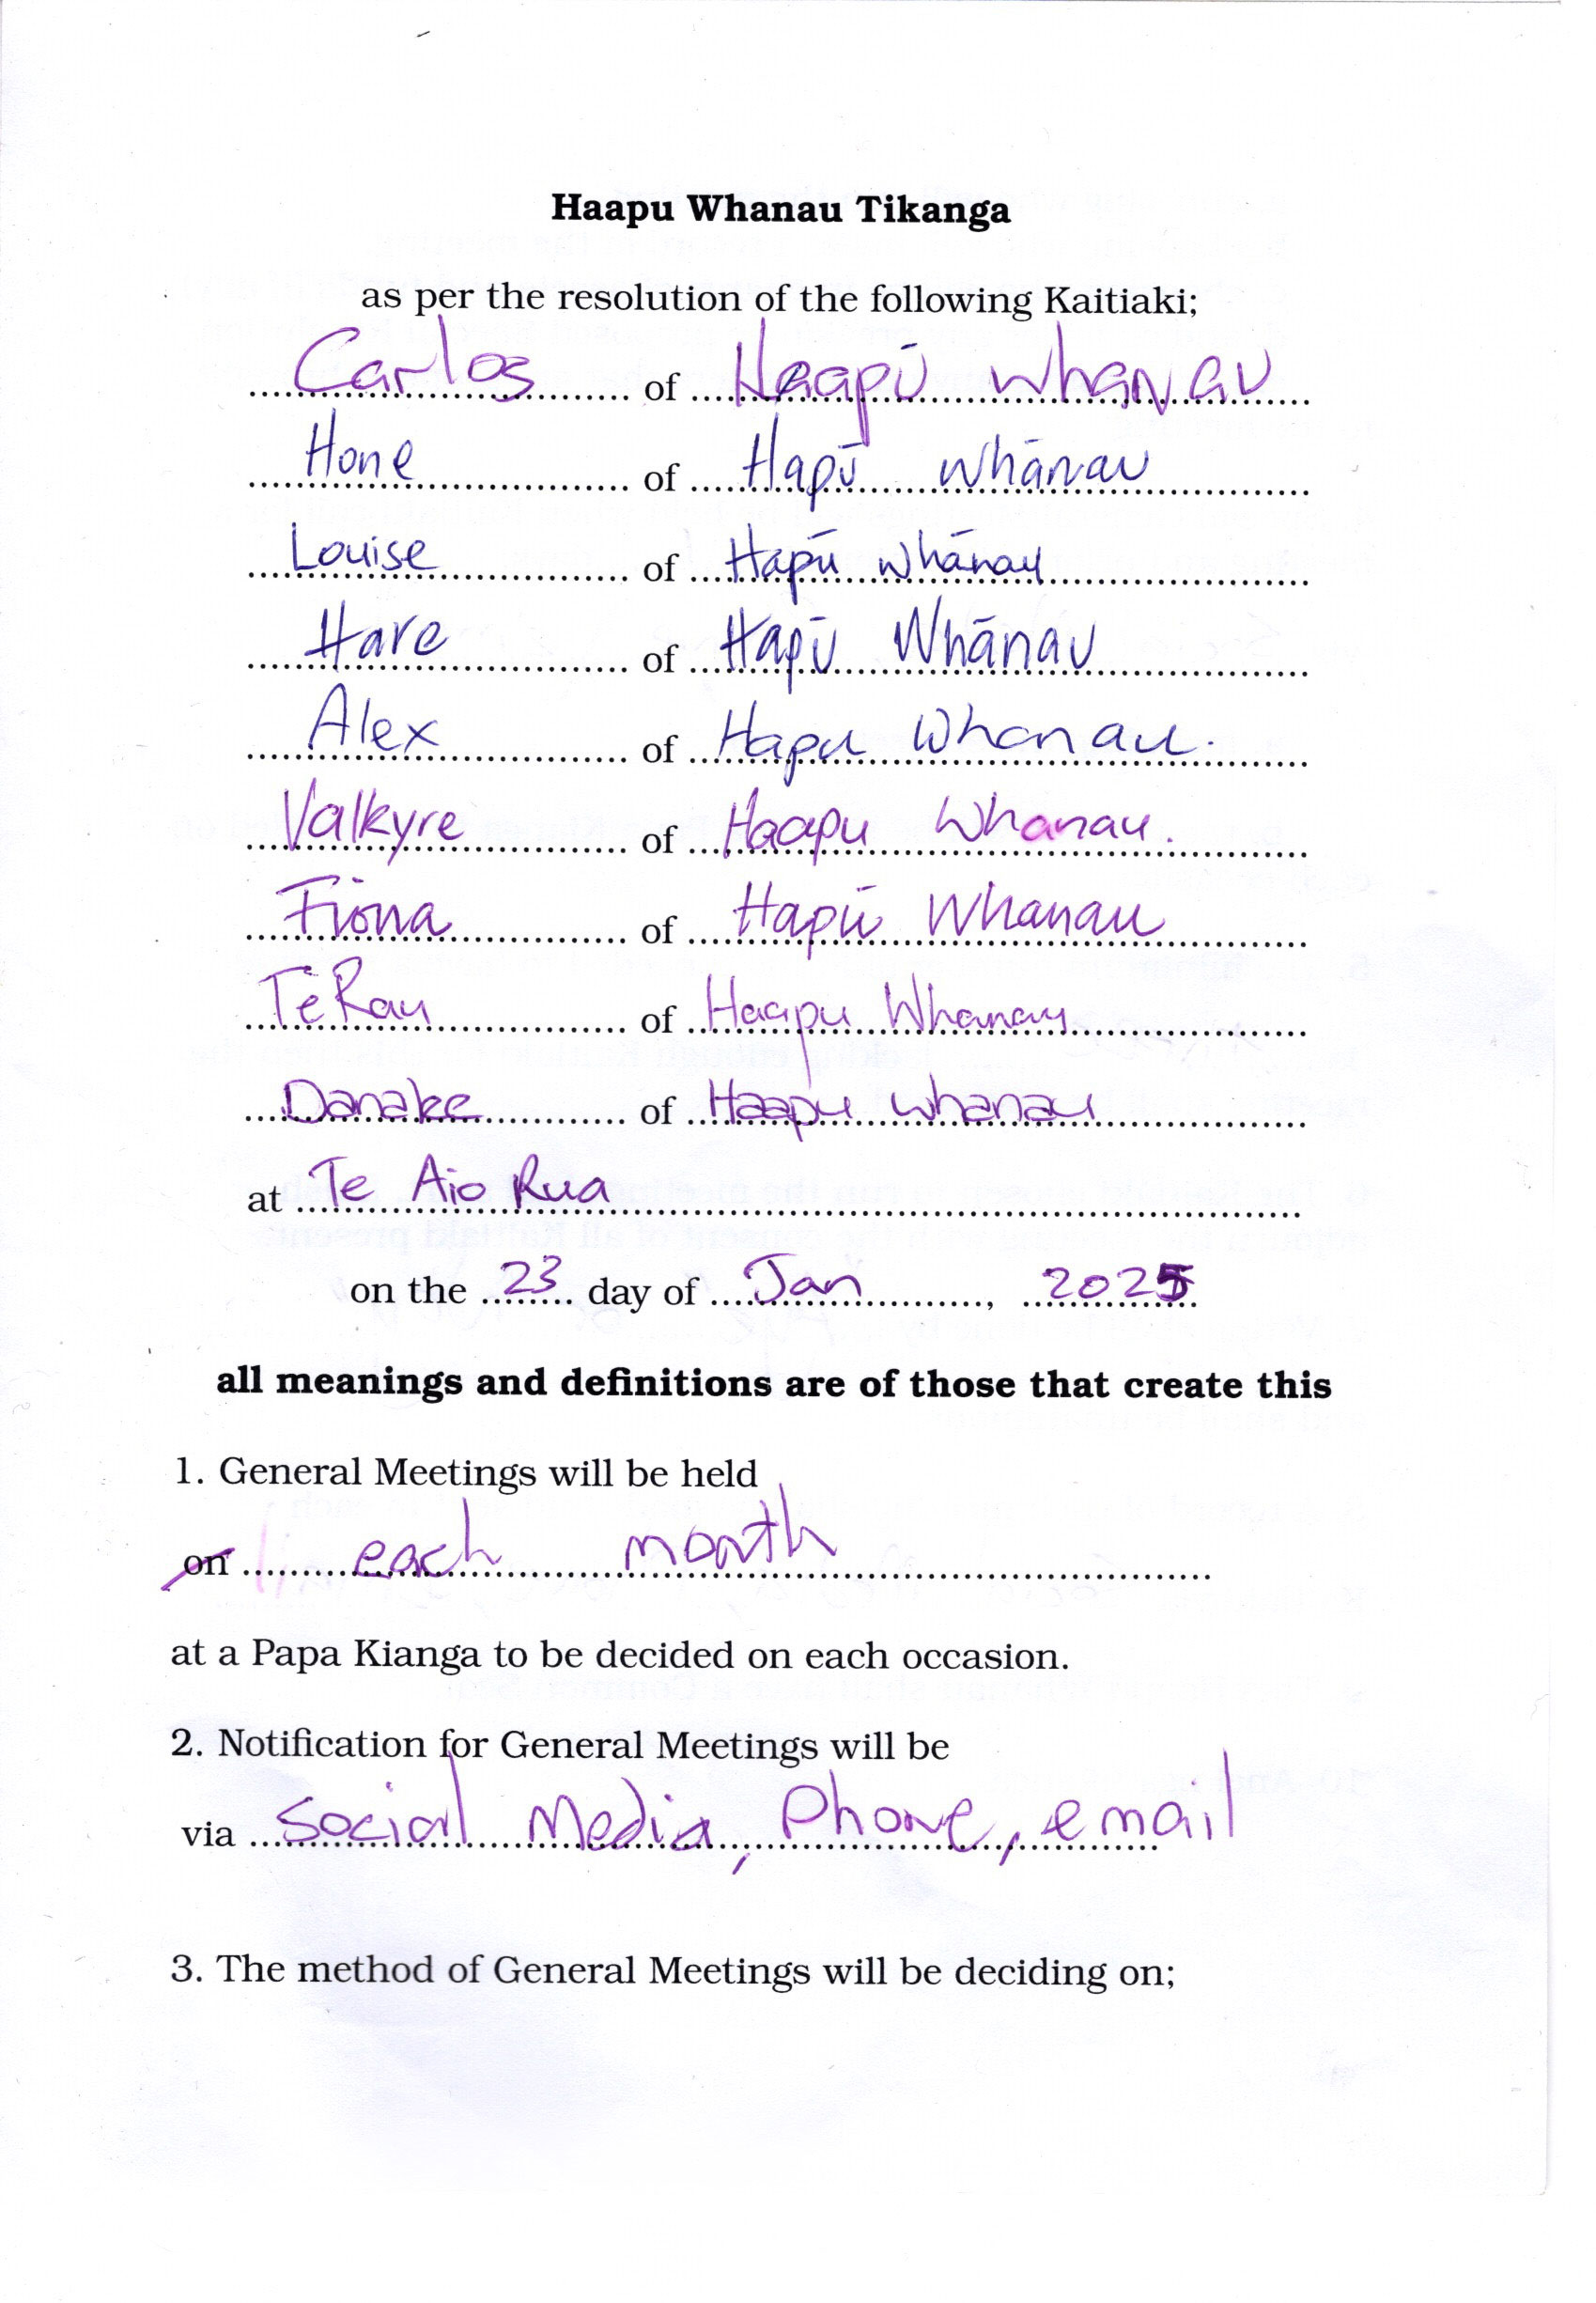 Haapu Whanau Tikanga
as per the resolution of the following Kaitiaki;
Carlos of Haapū whanau
Hone of Hapū whānau
Louise of Hapū whānau
Hare of Hapū Whānau
Alex of Hapu Whanau.
Valkyre of Haapu Whanau.
Fiona of Hapū Whanau
Te Rau of Haapu Whanau
Danakee of Haapu whanau
at Te Aio Rua
on the 23 day of Jan, 2025
all meanings and definitions are of those that create this
1. General Meetings will be held
on each month
at a Papa Kianga to be decided on each occasion.
2. Notification for General Meetings will be
via Social Media, Phone, email
3. The method of General Meetings will be deciding on;